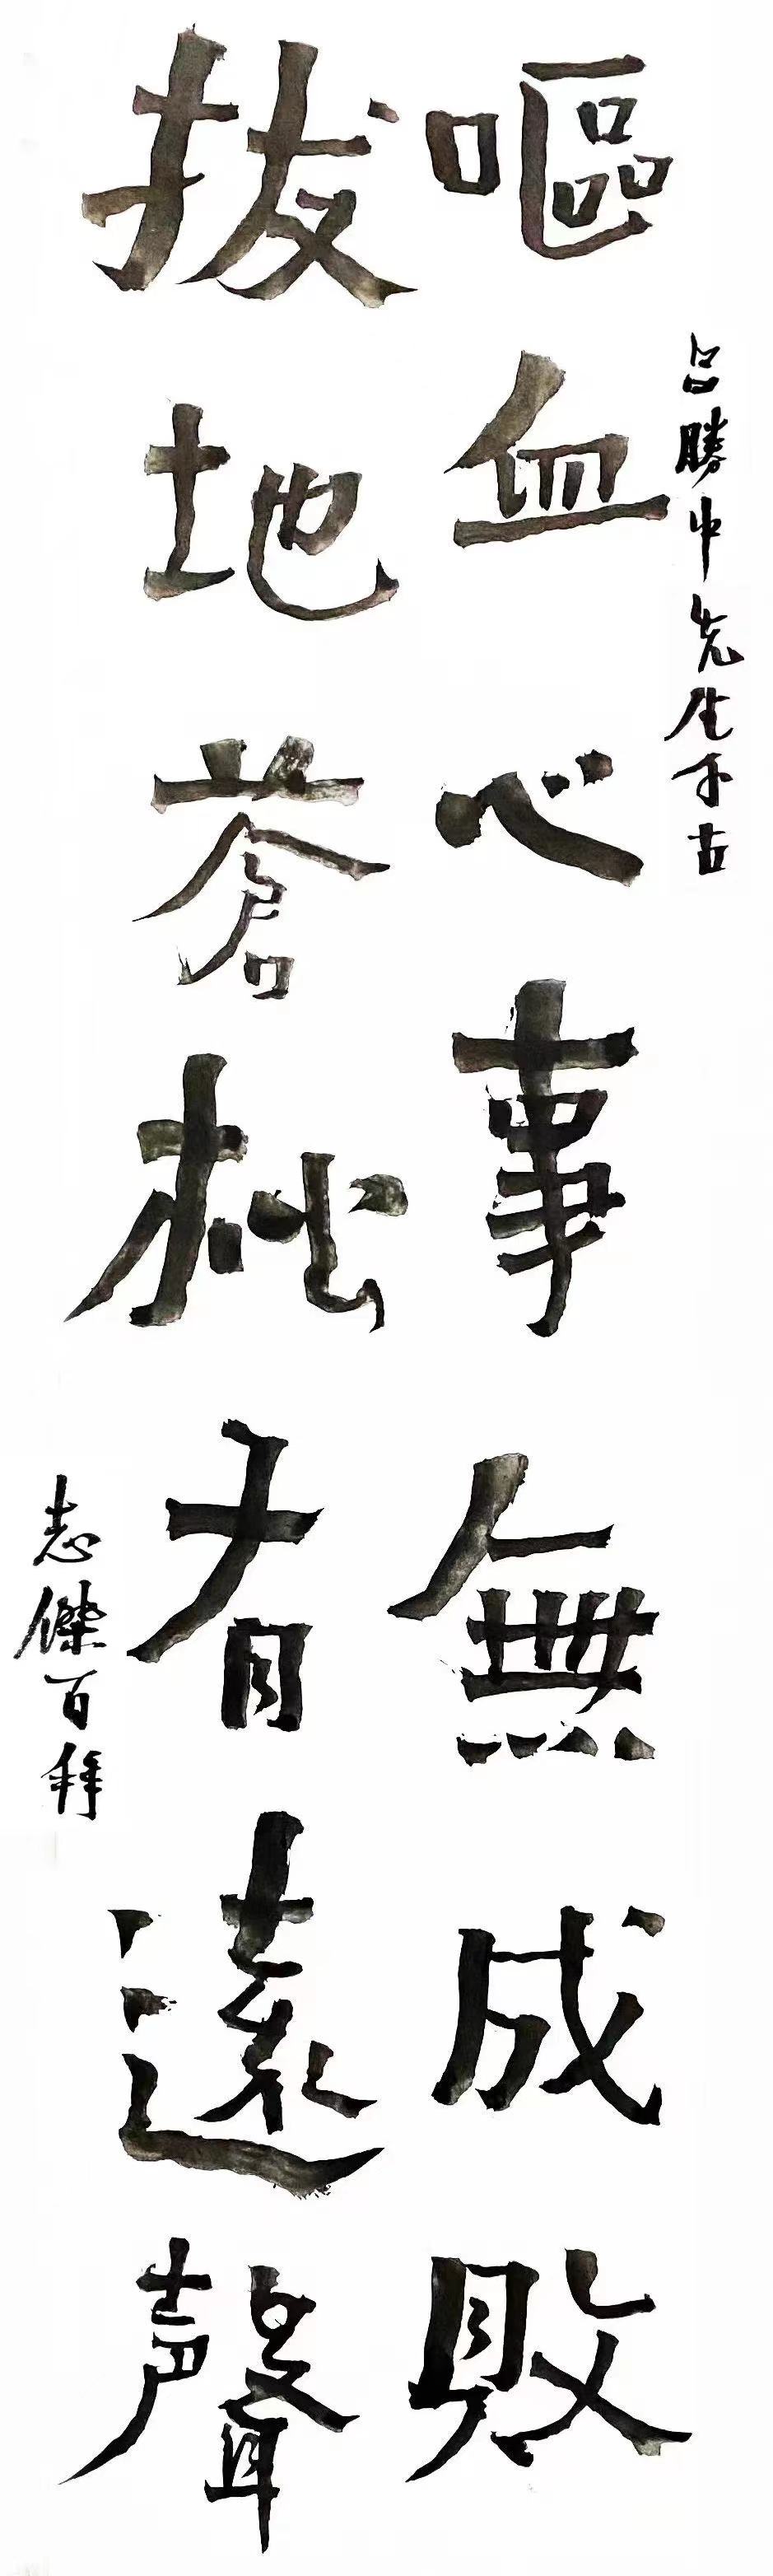 吕勝中先生千古
嘔血心事無成敗
拔地蒼松有遠聲
志傑百拜